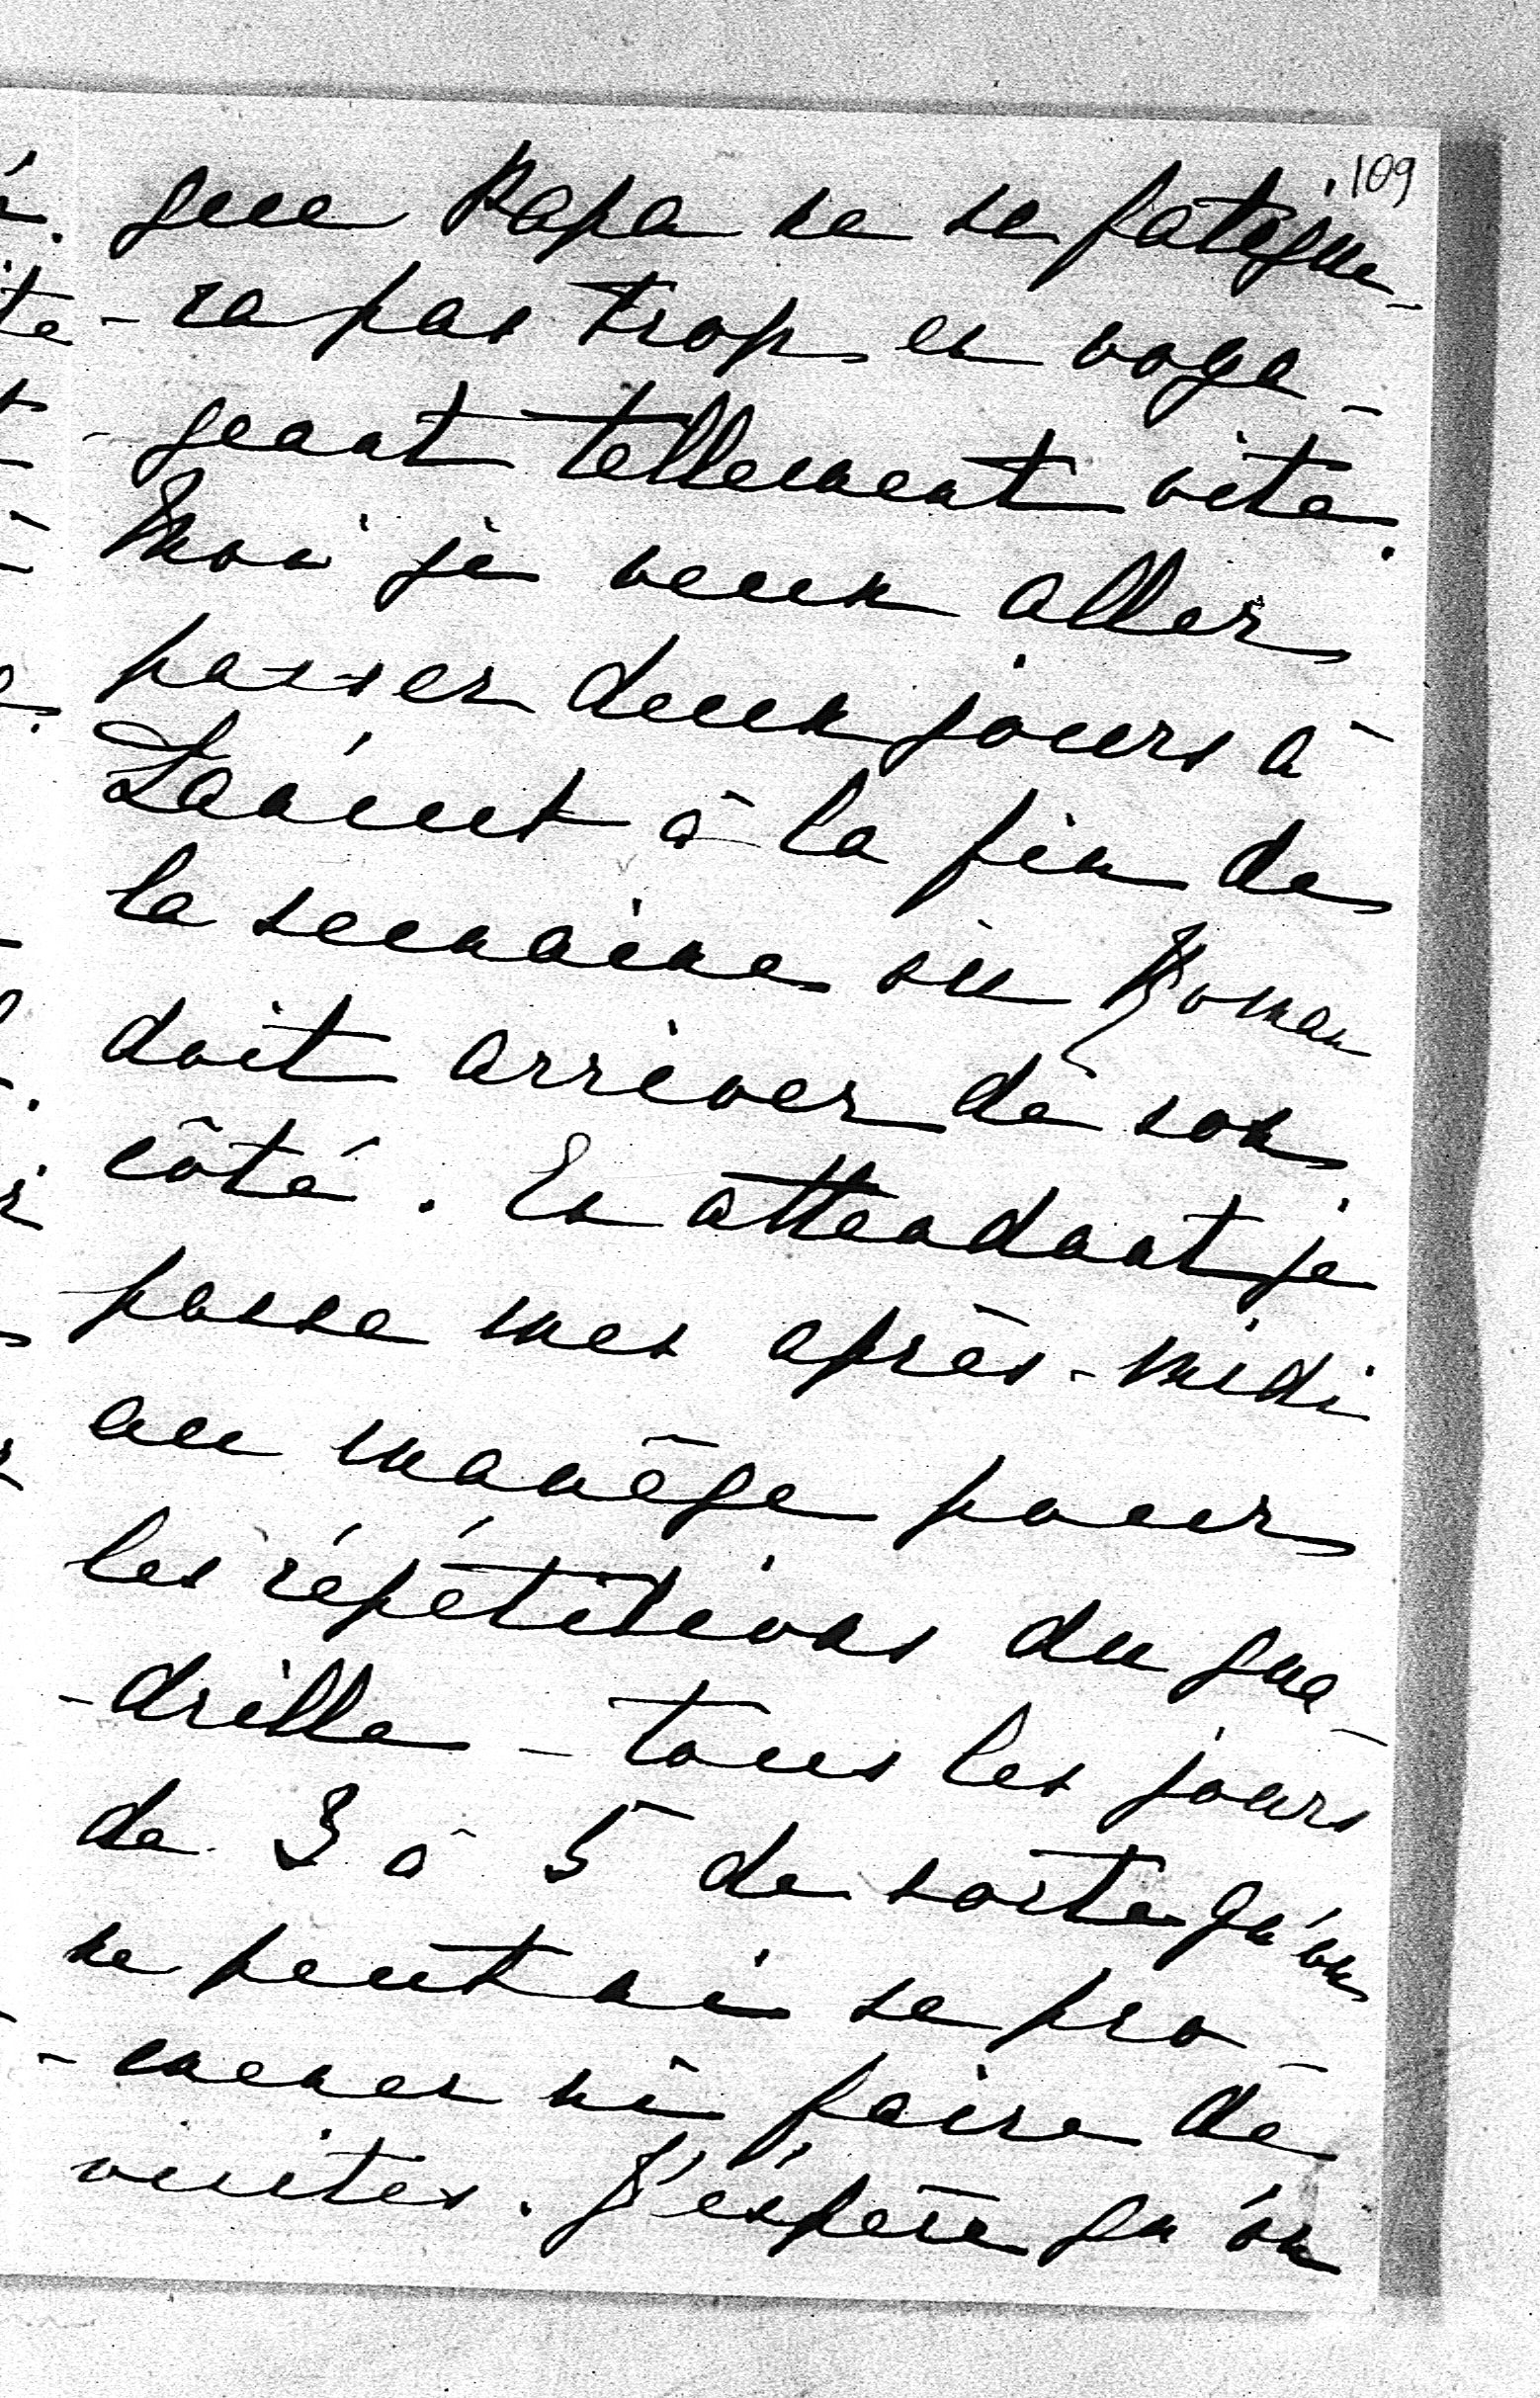 109
que Papa ne se fatigue-
-ra pas trop en voya-
-geant tellement vite.
Moi je veux aller
passer deux jours à
Łańcut à la fin de
la semaine où Roman
doit arriver de son
côté. En attendant je
passe mes après-midi
au manège pour
les répétitions du qua-
-drille - tous les jours
de 3 à 5 de sorte qu'on
ne peut ni se pro-
-mener ni faire de
visites. J'espère qu'on